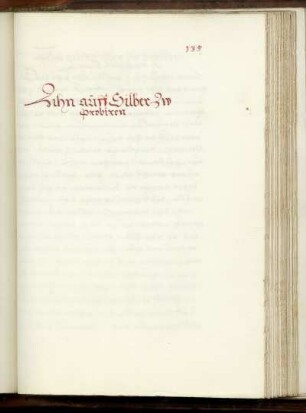 139
Zihn auff Silber Zw
Probiren